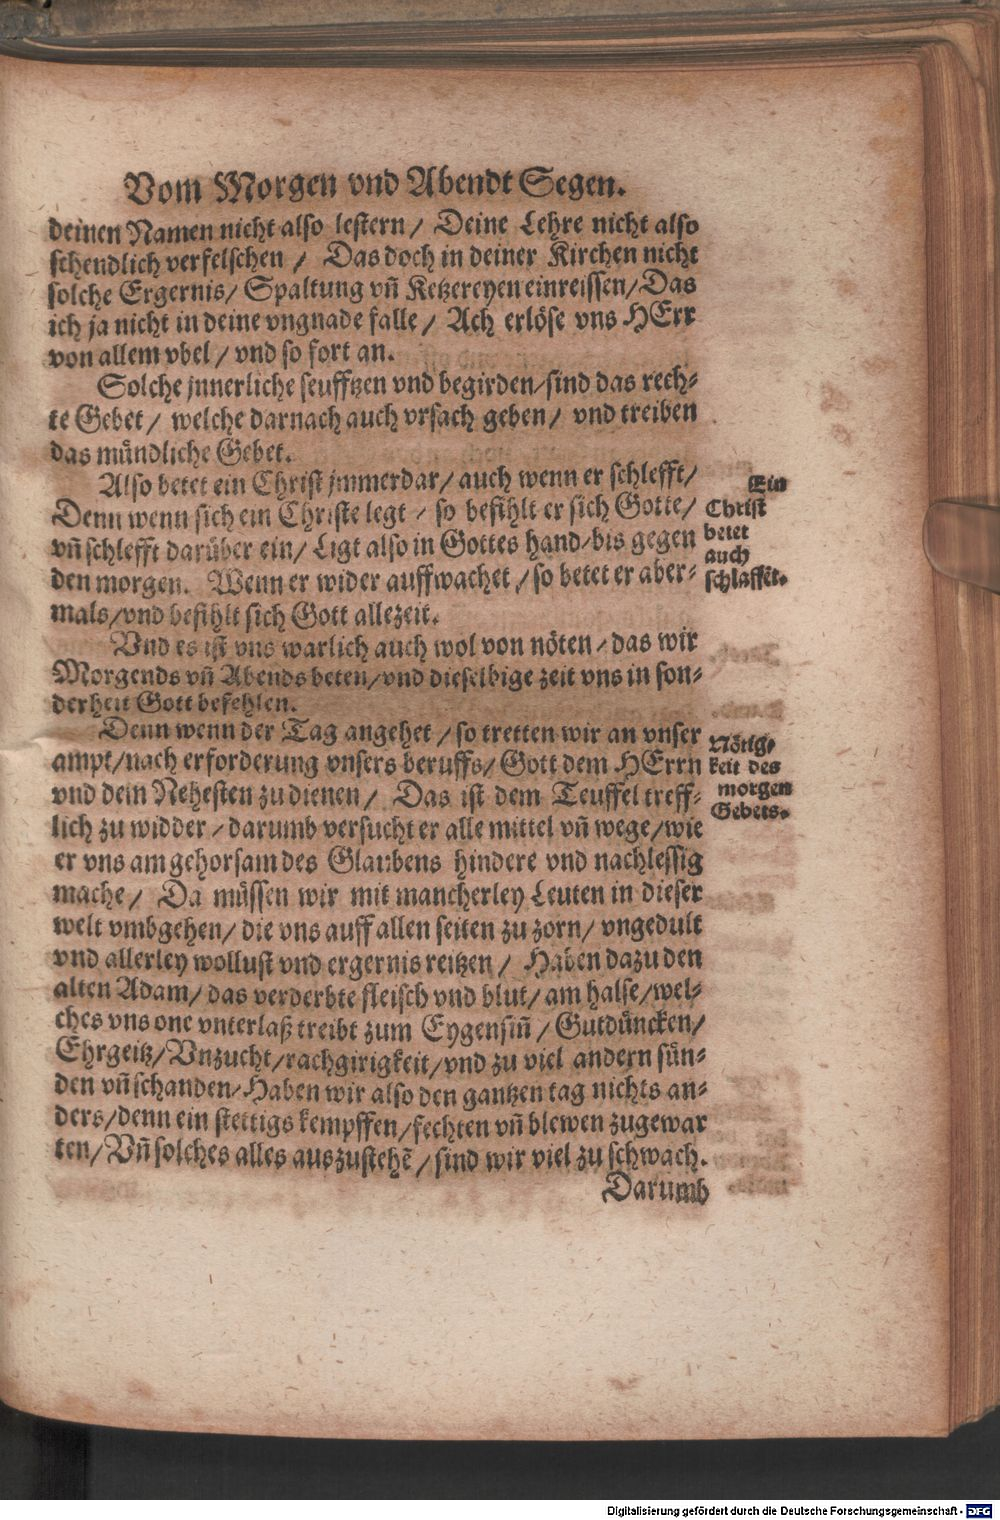 Vom Morgen vnd Abendt Segen.
deinen Namen nicht also lestern / Deine Lehre nicht also
schendlich verfelschen / Das doch in deiner Kirchen nicht
solche Ergernis/ Spaltung vñ Ketzereyen einreissen/Das
ich ja nicht in deine vngnade falle / Ach erlöse vns HErr
von allem vbel / vnd so fort an.
Solche jnnerliche seufftzen vnd begirden/sind das rech-
te Gebet / welche darnach auch vrsach geben / vnd treiben
das mündliche Gebet.
Also betet ein Christ jmmerdar/ auch wenn er schlefft/
Denn wenn sich ein Christe legt / so befihlt er sich Gotte/
vñ schlefft darüber ein/ Ligt also in Gottes hand/bis gegen
den morgen. Wenn er wider auffwachet /so betet er aber-
mals/vnd befihlt sich Gott allezeit.
Ein
Christ
betet
auch
schlaffēt.
Vnd es ist vns warlich auch wol von nöten /das wir
Morgends vñ Abends beten/vnd dieselbige zeit vns in son-
derheit Gott befehlen.
Denn wenn der Tag angehet /so tretten wir an vnser
ampt/nach erforderung vnsers beruffs/ Gott dem HErrn
vnd dem Nehesten zu dienen / Das ist dem Teuffel treff-
lich zu widder /darumb versucht er alle mittel vñ wege/wie
er vns am gehorsam des Glaubens hindere vnd nachlessig
mache / Da müssen wir mit mancherley Leuten in dieser
welt vmbgehen/ die vns auff allen seiten zu zorn/ vngedult
vnd allerley wollust vnd ergernis reitzen / Haben dazu den
alten Adam/ das verderbte fleisch vnd blut/ am halse/wel-
ches vns one vnterlaß treibt zum Eygensiñ / Gutdüncken/
Ehrgeitz/Vnzucht/rachgirigkeit/vnd zu viel andern sün-
den vñ schanden/Haben wir also den gantzen tag nichts an-
ders/denn ein stettigs kempffen/fechten vñ blewen zugewar
ten/ Vñ solches alles auszustehē /sind wir viel zu schwach.
Nötig-
keit des
morgen
Gebets.
Darumb
Digitalisierung gefördert durch die Deutsche Forschungsgemeinschaft - DFG